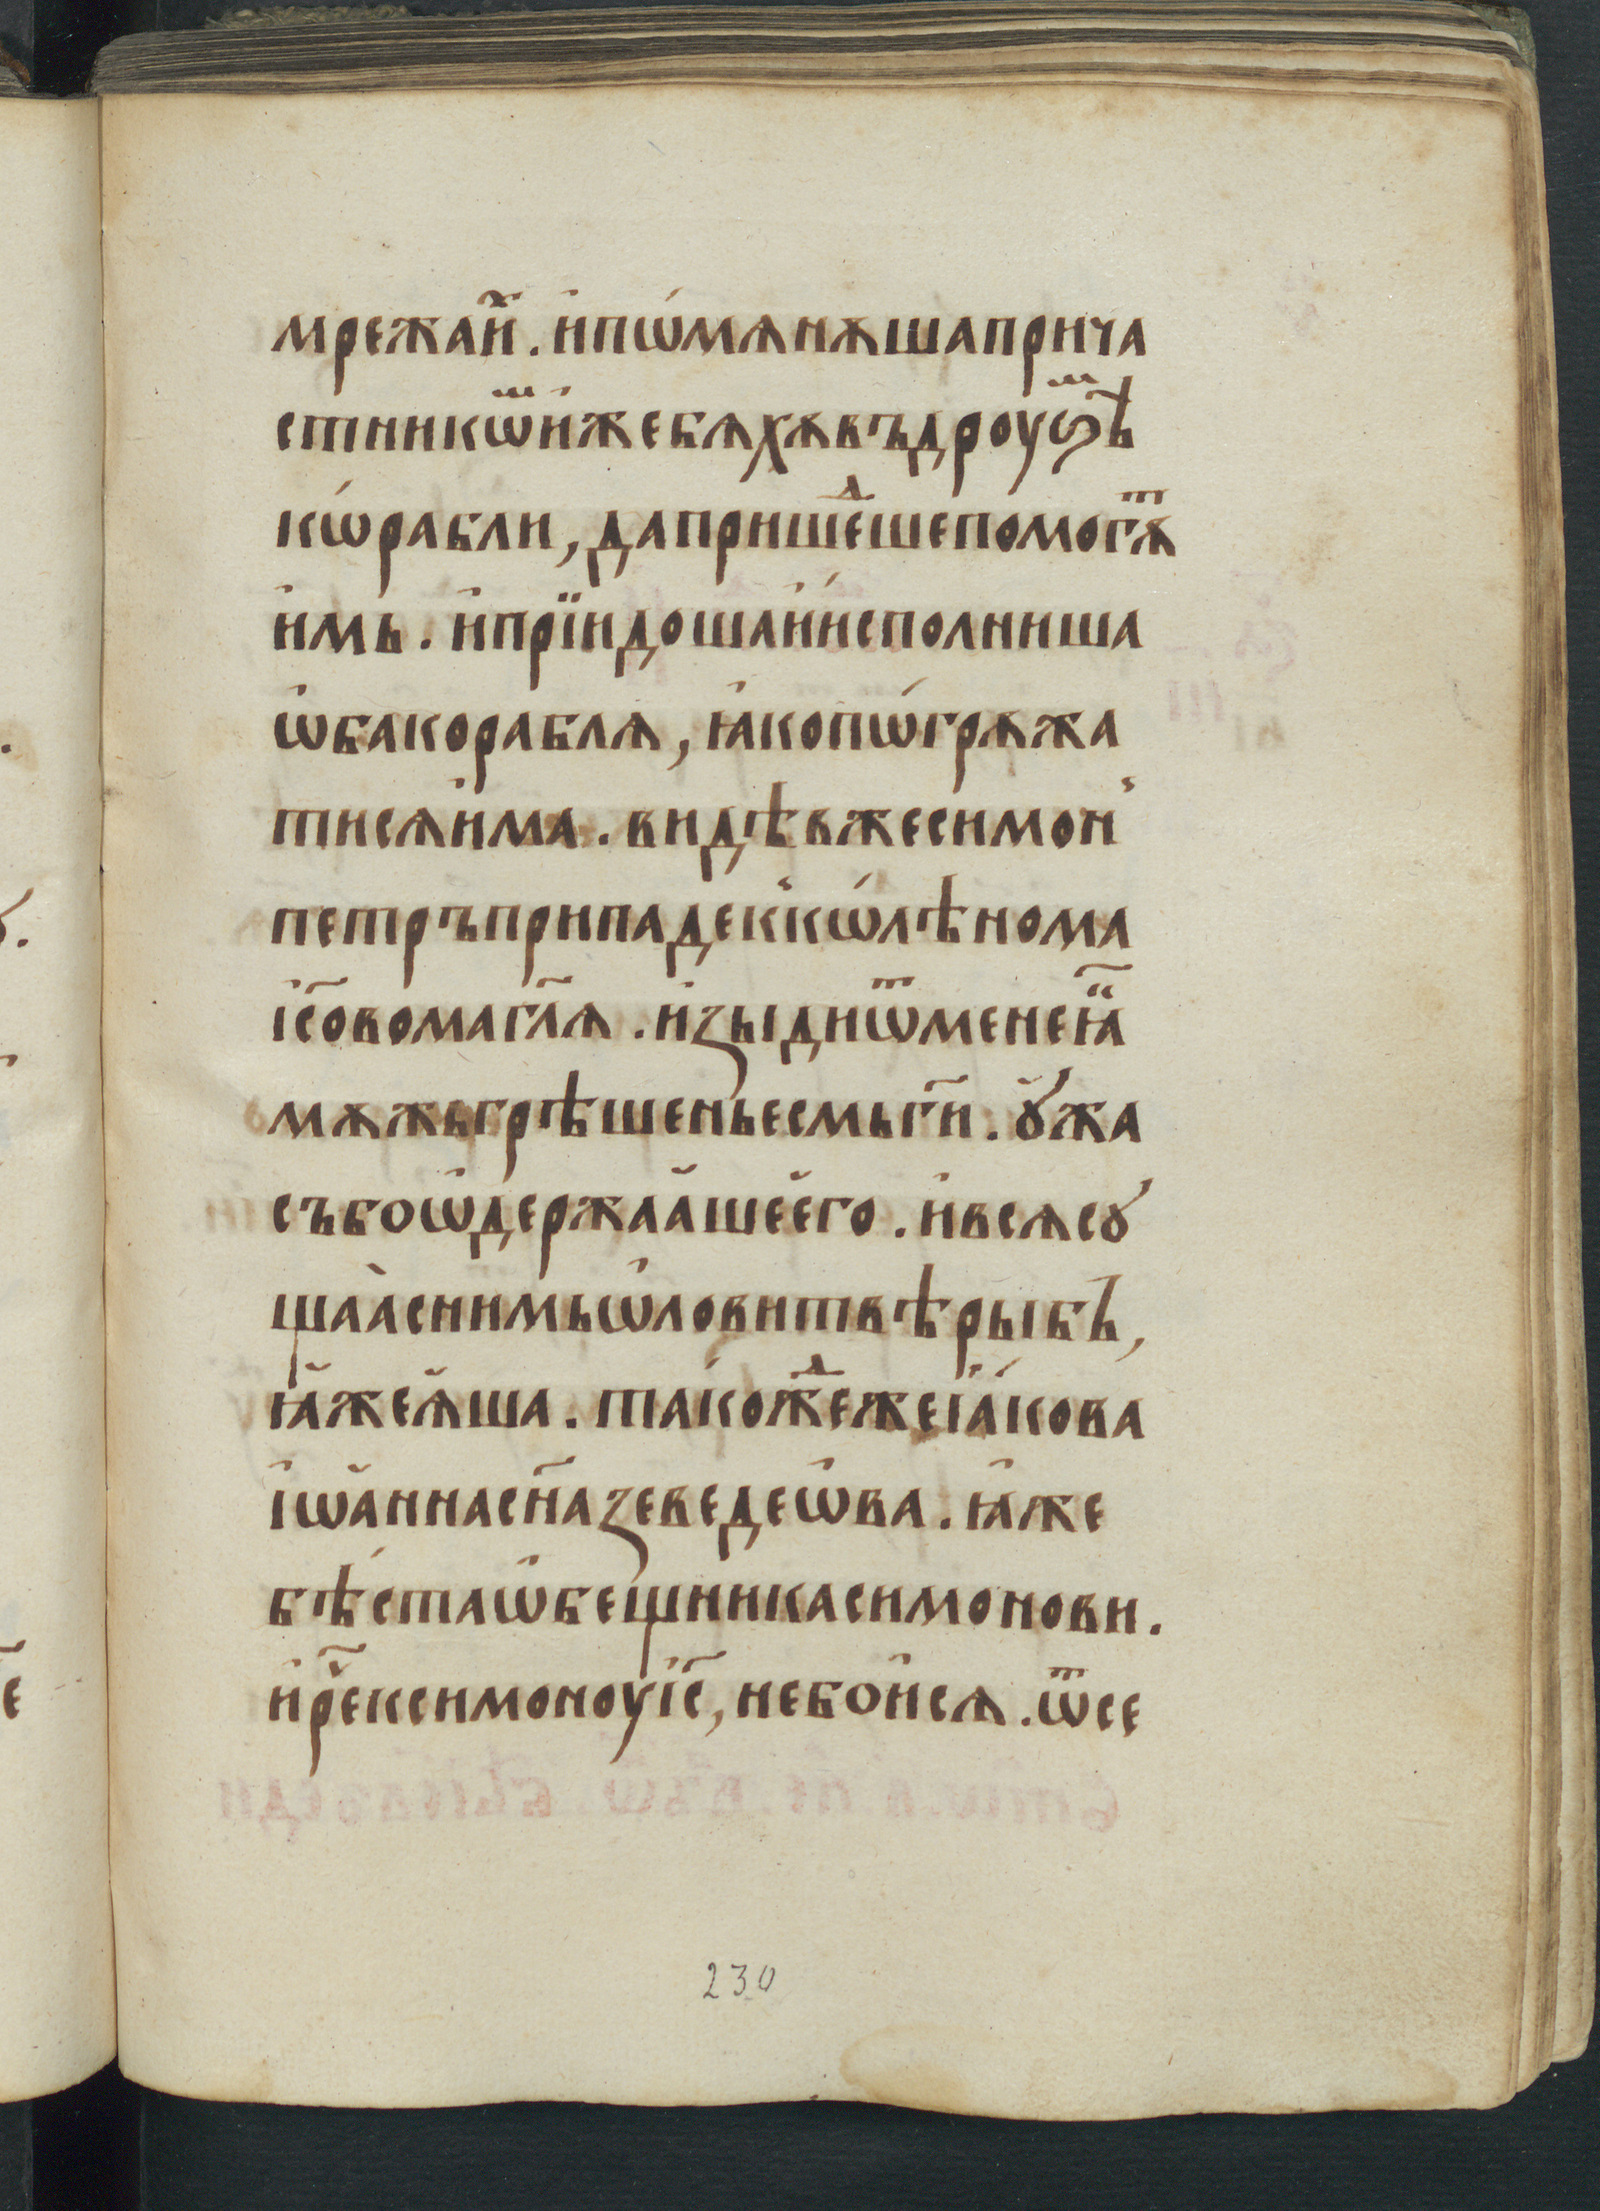 мрежаи҃ . и҆пѡ́мѧнѧшаприча
стникѡⷨи҆жебѧхѫвъдроуѕⷨѣ
кѡ́рабли , даприше́ⷣшепомогѫⷮ
и҆мь . и҆прїидошаи҆и҆сполниша
ѡ҆бакораблѧ , ꙗ҆копѡ́грѫжа
тисѧи҆ма . видѣвжесимон꙽
петръприпадек꙽кѡ́лѣнома
і҆с҃овомагл҃ѧ . и҆зыдиѿменеꙗ҃
мѫжьгрѣшеньесмьги҃ . ꙋ҆жа
събоѡ҆держаашеего . и҆всѧсꙋ
щаа̀снимьѡ҆ловитвѣрыбъ ,
ꙗ҆жеѧша . та́кожⷣежеіа҆́кова
і҆ѡаннасн҃азеведеѡ҆ва . ꙗ҆же
бѣ́стаѡ҆бещникасимонови .
и҆рⷱ҇ексимоноуі҆с҃ , небои҆сѧ . ѿсе
230